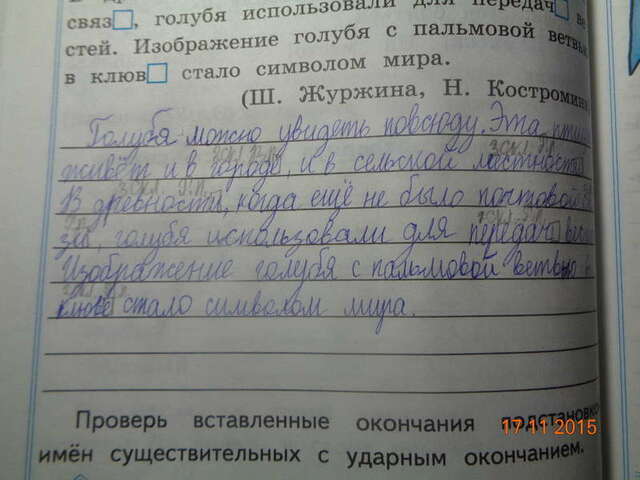 связ☐, голубя использовали для передач☐
стей. Изображение голубя с пальмовой
в клюв☐ стало символом мира.
(Ш. Журжина, Н. Костромина
Голубя можно увидеть повсюду. Эта
живёт и в городе, и в сельской местности.
В древности, когда ещё не было почтовой
голубя использовали для передачи
Изображение голубя с пальмовой ветвью
клюве стало символом мира.
Проверь вставленные окончания подстановкой
имён существительных с ударным окончанием.
17 11 2015